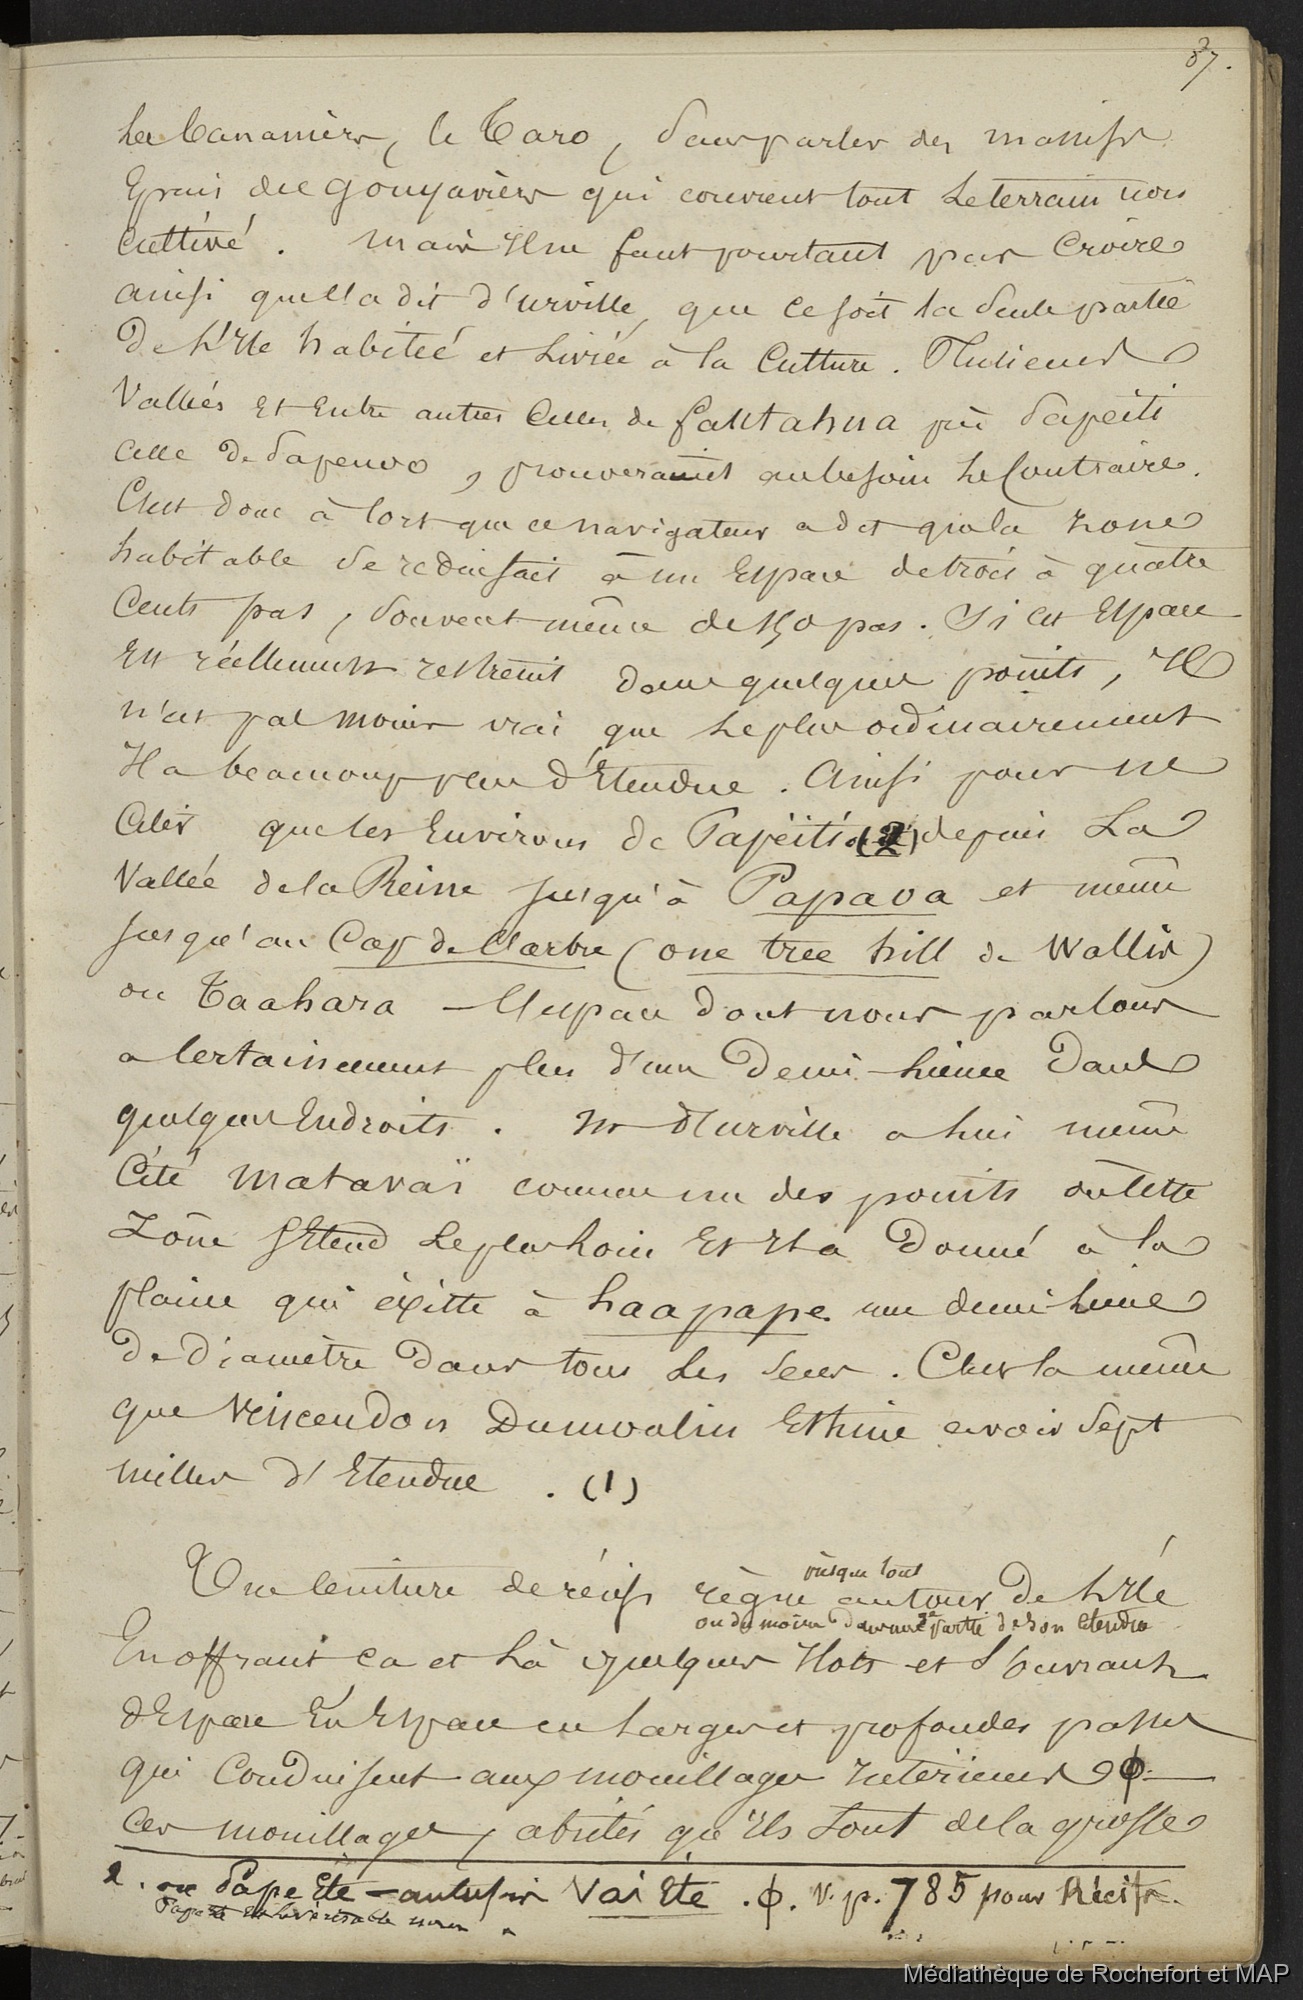 87.
les bananiers, le Taro, sans parler des massifs
Epais de gouyaviers qui couvrent tout le terrain non
cultivé. mais Il ne faut pourtant pas Croire
ainsi que l'a dit d'urville, que ce soit la seule partie
De l'Ile habitée et Livrée à la Culture. Plusieurs
Vallées et Entre autres Celles de fautahua près Papeiti
celle De Papenoo, prouveraient au besoin le Contraire.
C'est donc à tort que ce navigateur a dit que la zone
habitable se reduisait à un Espace de trois à quatre
Cents pas, souvent même de 150 pas. Si cet Espace
Est réellement restreint dans quelques points, Il
n'est pas moins vrai que le plus ordinairement
Il a beaucoup plus d'Etendue. Ainsi pour ne
Citer que les Environs de Papéiti (2) depuis La
Vallée de la Reine jusqu'à Papava et même
jusqu'au Cap de l'arbre (one tree hill de Wallis)
ou Taahara - l'Espace dont nous parlons
a certainement plus d'une Demi-lieue Dans
quelques Endroits. Mr d'Urville a lui même
Cité Matavaï comme un des points où cette
Zône s'Etend le plus loin Et Il a Donné à la
plaine qui éxiste à haapape une demi lieue
De Diamètre Dans tous les sens. C'est la même
que Vincendon Dumoulin Estime avoir Sept
milles d'Etendue. (1)
Une Ceinture de récifs règne presque tout autour De l'Ile
ou du moins dans une gde partie de son Etendue
En offrant ça et Là quelques Ilots et s'ouvrant
d'Espace En Espace en larges et profondes passes
qui Conduisent aux mouillages Intérieurs ϕ.
Ces mouillages, abrités qu'Ils sont de la grosse
2. ou PapeEté - autrefois VaiEté. ϕ. V. p. 785 pour Récifs.
Papeete est le véritable nom.
Médiathèque de Rochefort et MAP